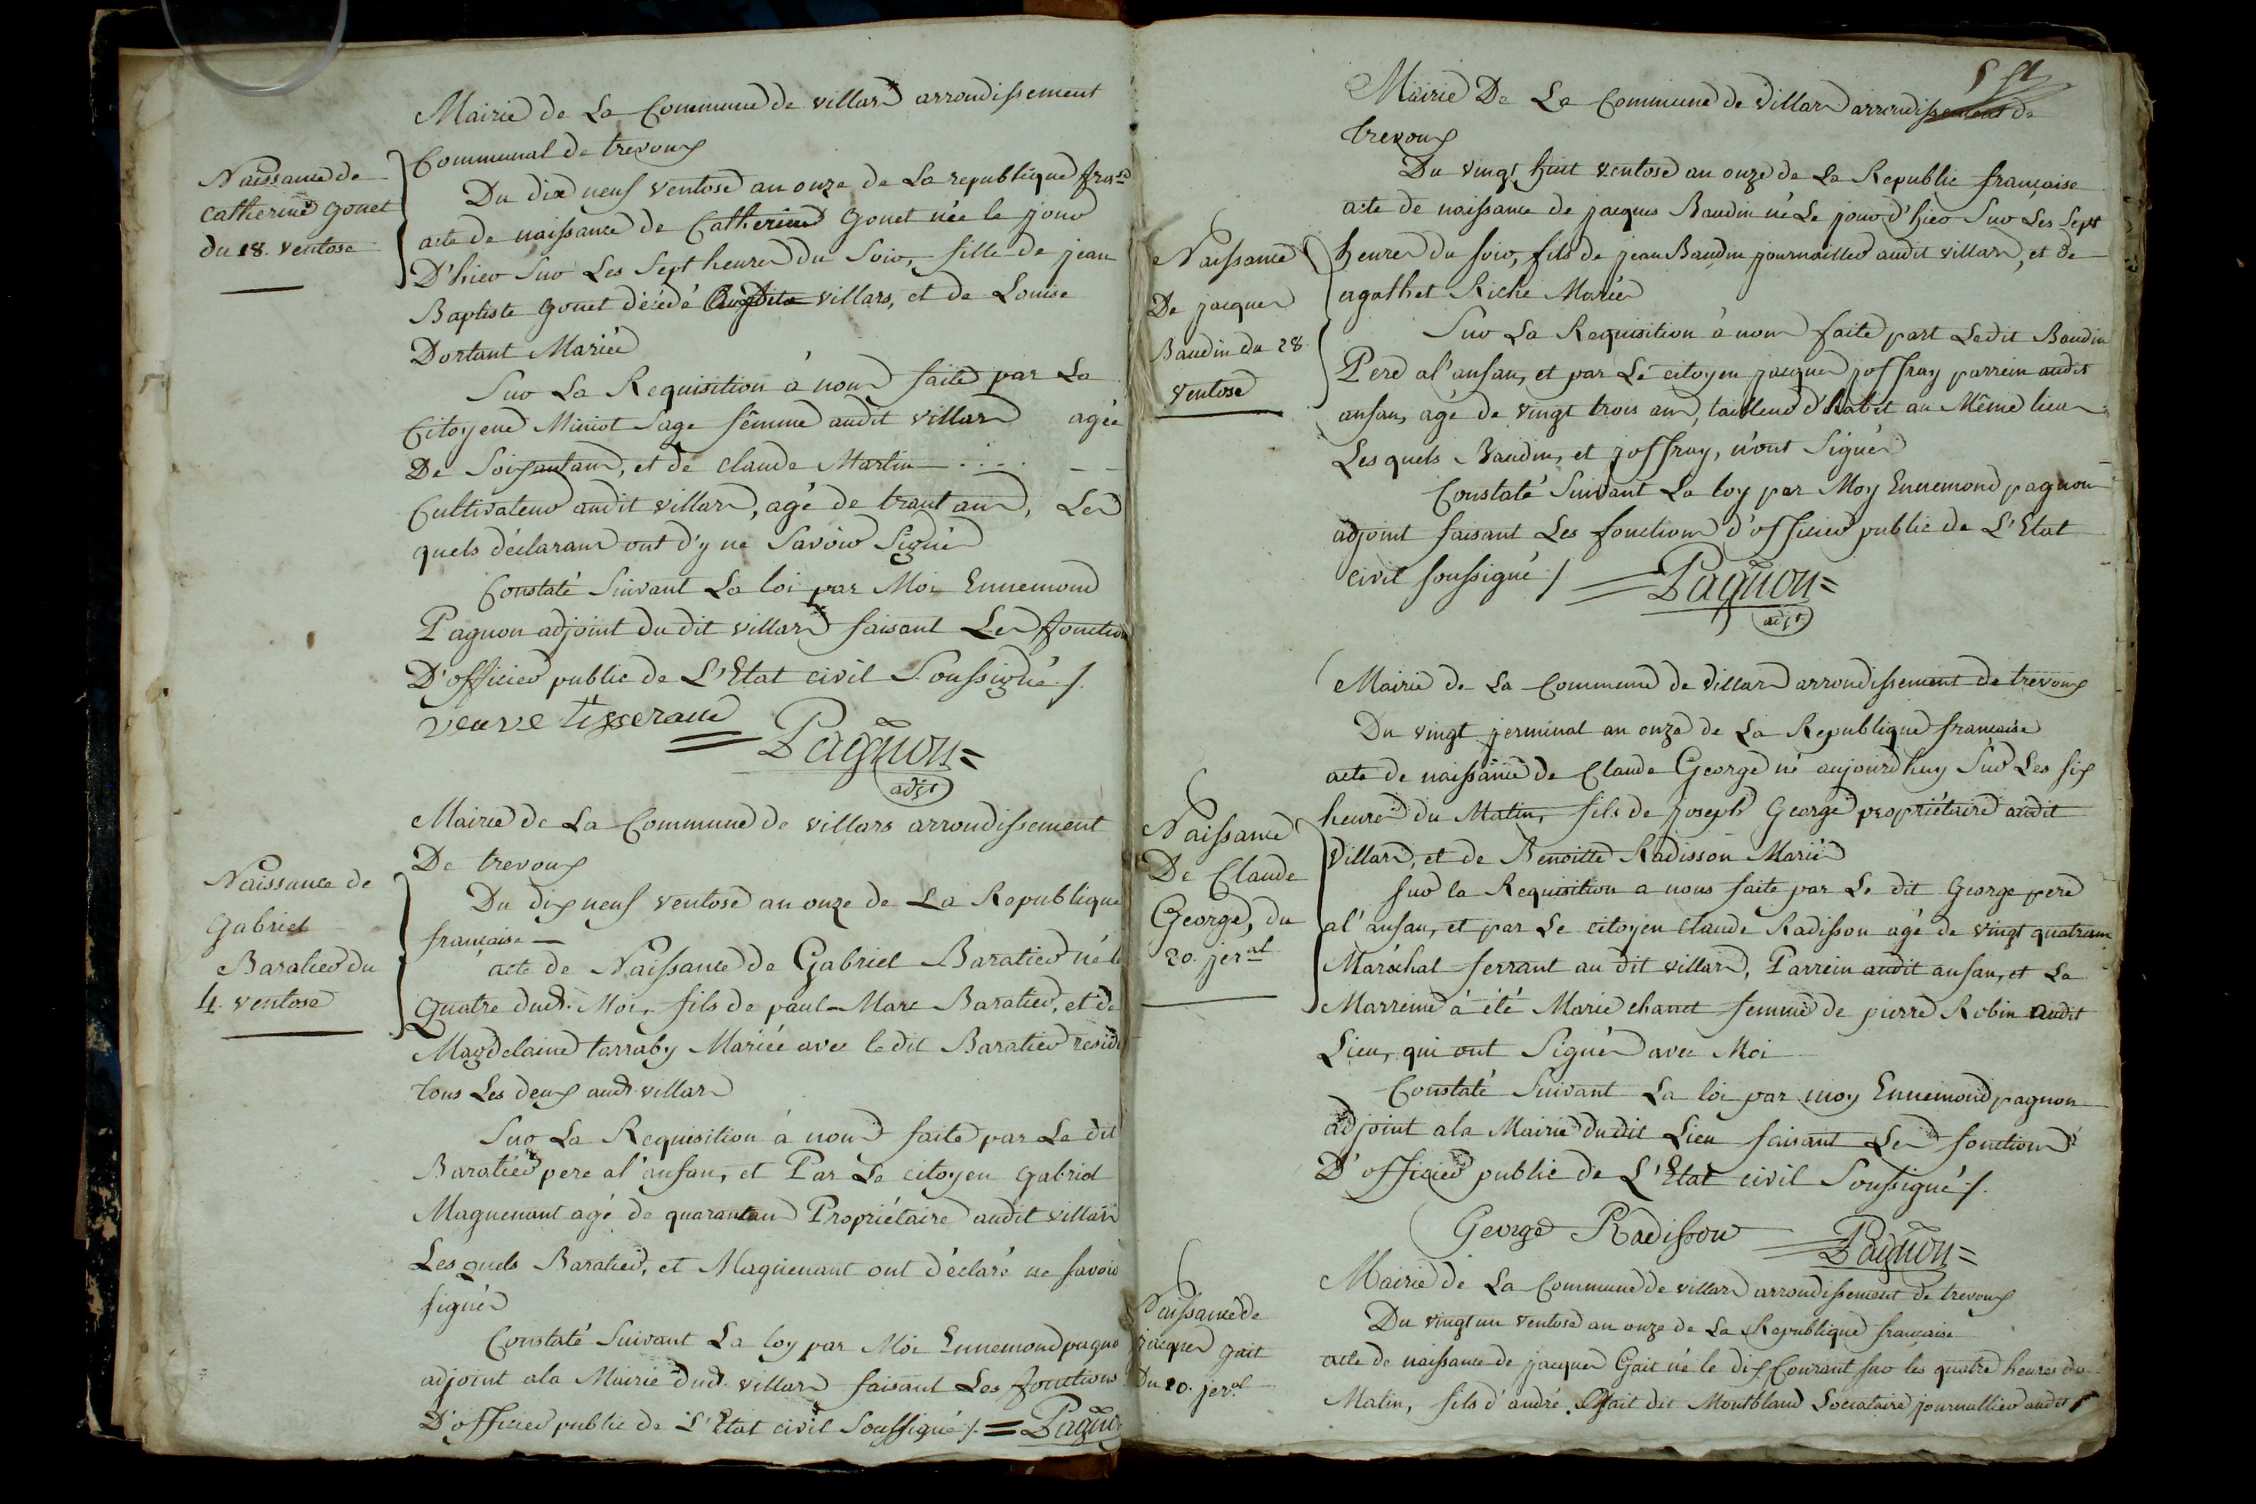 Mairie de La Commune de villars arrondissement
Communal de trevoux
Naissance de
Catherine gonet
du 18. ventose
Du dix neuf ventose an onze de La republique franse
acte de naissance de Catherine gonet née le jour
D'hier Sur Les Sept heures du Soir, fille de jean
Baptiste gonet décédé villars, et de Louise
Dortant Mariée
Sur La Requisition à nous faite par La
Citoyene Miniot Sage fémme audit villars agée
De Soixantans, et de claude Martin
Cultivateur audit villars, agé de trant ans, Les
quels déclarans ont d'y ne Savoir Signér
Constaté Suivant La loi par Moi Ennemond
Pagnon adjoint du dit villars faisant Les fonction
D'officier public de L'Etat civil Soussigné ./.
veuve tisserand
Pagnon
adjt
Mairie de La Commune de villars arrondissement
De trevoux
Naissance de
Gabriel
Baratier du
4. ventose
Du dix neuf ventose an onze de La Republique
française
acte de Naissance de Gabriel Baratier né le
Quatre dudt. Moi, fils de paul Marc Baratier, et de
Magdelaine tarraby Mariée avec le dit Baratier résid
tous Les deux audt. villars
Sur La Requisition à nous faite par Le dit
Baratier pere al'anfan, et Par Le citoyen gabriel
Maguenant agé de quarantans Propriétaire audit villars
Les quels Baratier, et Maguenant ont déclaré ne savoir
signér
Constaté Suivant La loy par Moi Ennemond pagno
adjoint ala Mairie dudt. villars faisant Les fonctions
D'officier public de L'Etat civil Soussigné ./. = Pagno
Mairie De La Commune de villars arrondissement de
trevoux
Du vingt huit ventose an onze de La Republic française
acte de naissance de jacques Baudin né Le jour d'hier Sur Les Sept
Naissance
De jacques
Baudin du 28
ventose
heures du soir, fils de jean Baudin journaillier audit villars, et de
agathet Riche Mariés
Sur La Requisition à nous faite part Ledit Baudin
Pere al'anfan, et par Le citoyen jacques joffray parrein audit
anfan, agé de vingt trois ans, tailleur d'habit au Même lieu
Les quels Baudin, et joffray, n'ont Signér
Constaté Suivant La loy par Moy Ennemond pagnon
adjoint faisant Les fonctions d'officier public de L'Etat
civil soussigné ./. Pagnon
adjt
Mairie de La Commune de villars arrondissement de trevoux
Du vingt jerminal an onze de La Republique française
acte de naissance de Claude George né aujourdhuy Sur Les six
Naissance
De Claude
George, du
20. jernal
heures du Matin, fils de joseph George propriétaire audit
villars, et de Benoitte Radisson Mariés
sur la Requisition a nous faite par Le dit George pere
al'anfan, et par Le citoyen Claude Radisson agé de vingt quatrans
Maréchal ferrant au dit villars, Parrein audit anfan, et La
Marreine à été Marie chanet femme de pierre Robin audit
Lieu, qui ont Signér avec Moi
Constaté Suivant La loi par moy Ennemond pagnon
adjoint ala Mairie dudit Lieu faisant Les fonctions
D'officier public de L'Etat civil Soussigné ./.
George Radisson Pagnon
Mairie de La Commune de villars arrondissement de trevoux
Du vingt un ventose an onze de La Republique française
Naissance de
jacques gait
Du 20. jernal
acte de naissance de jacques Gait né le dix Courant sur les quatre heures du
Matin, fils d'andré Gait dit Montbland Locataire journallier audit